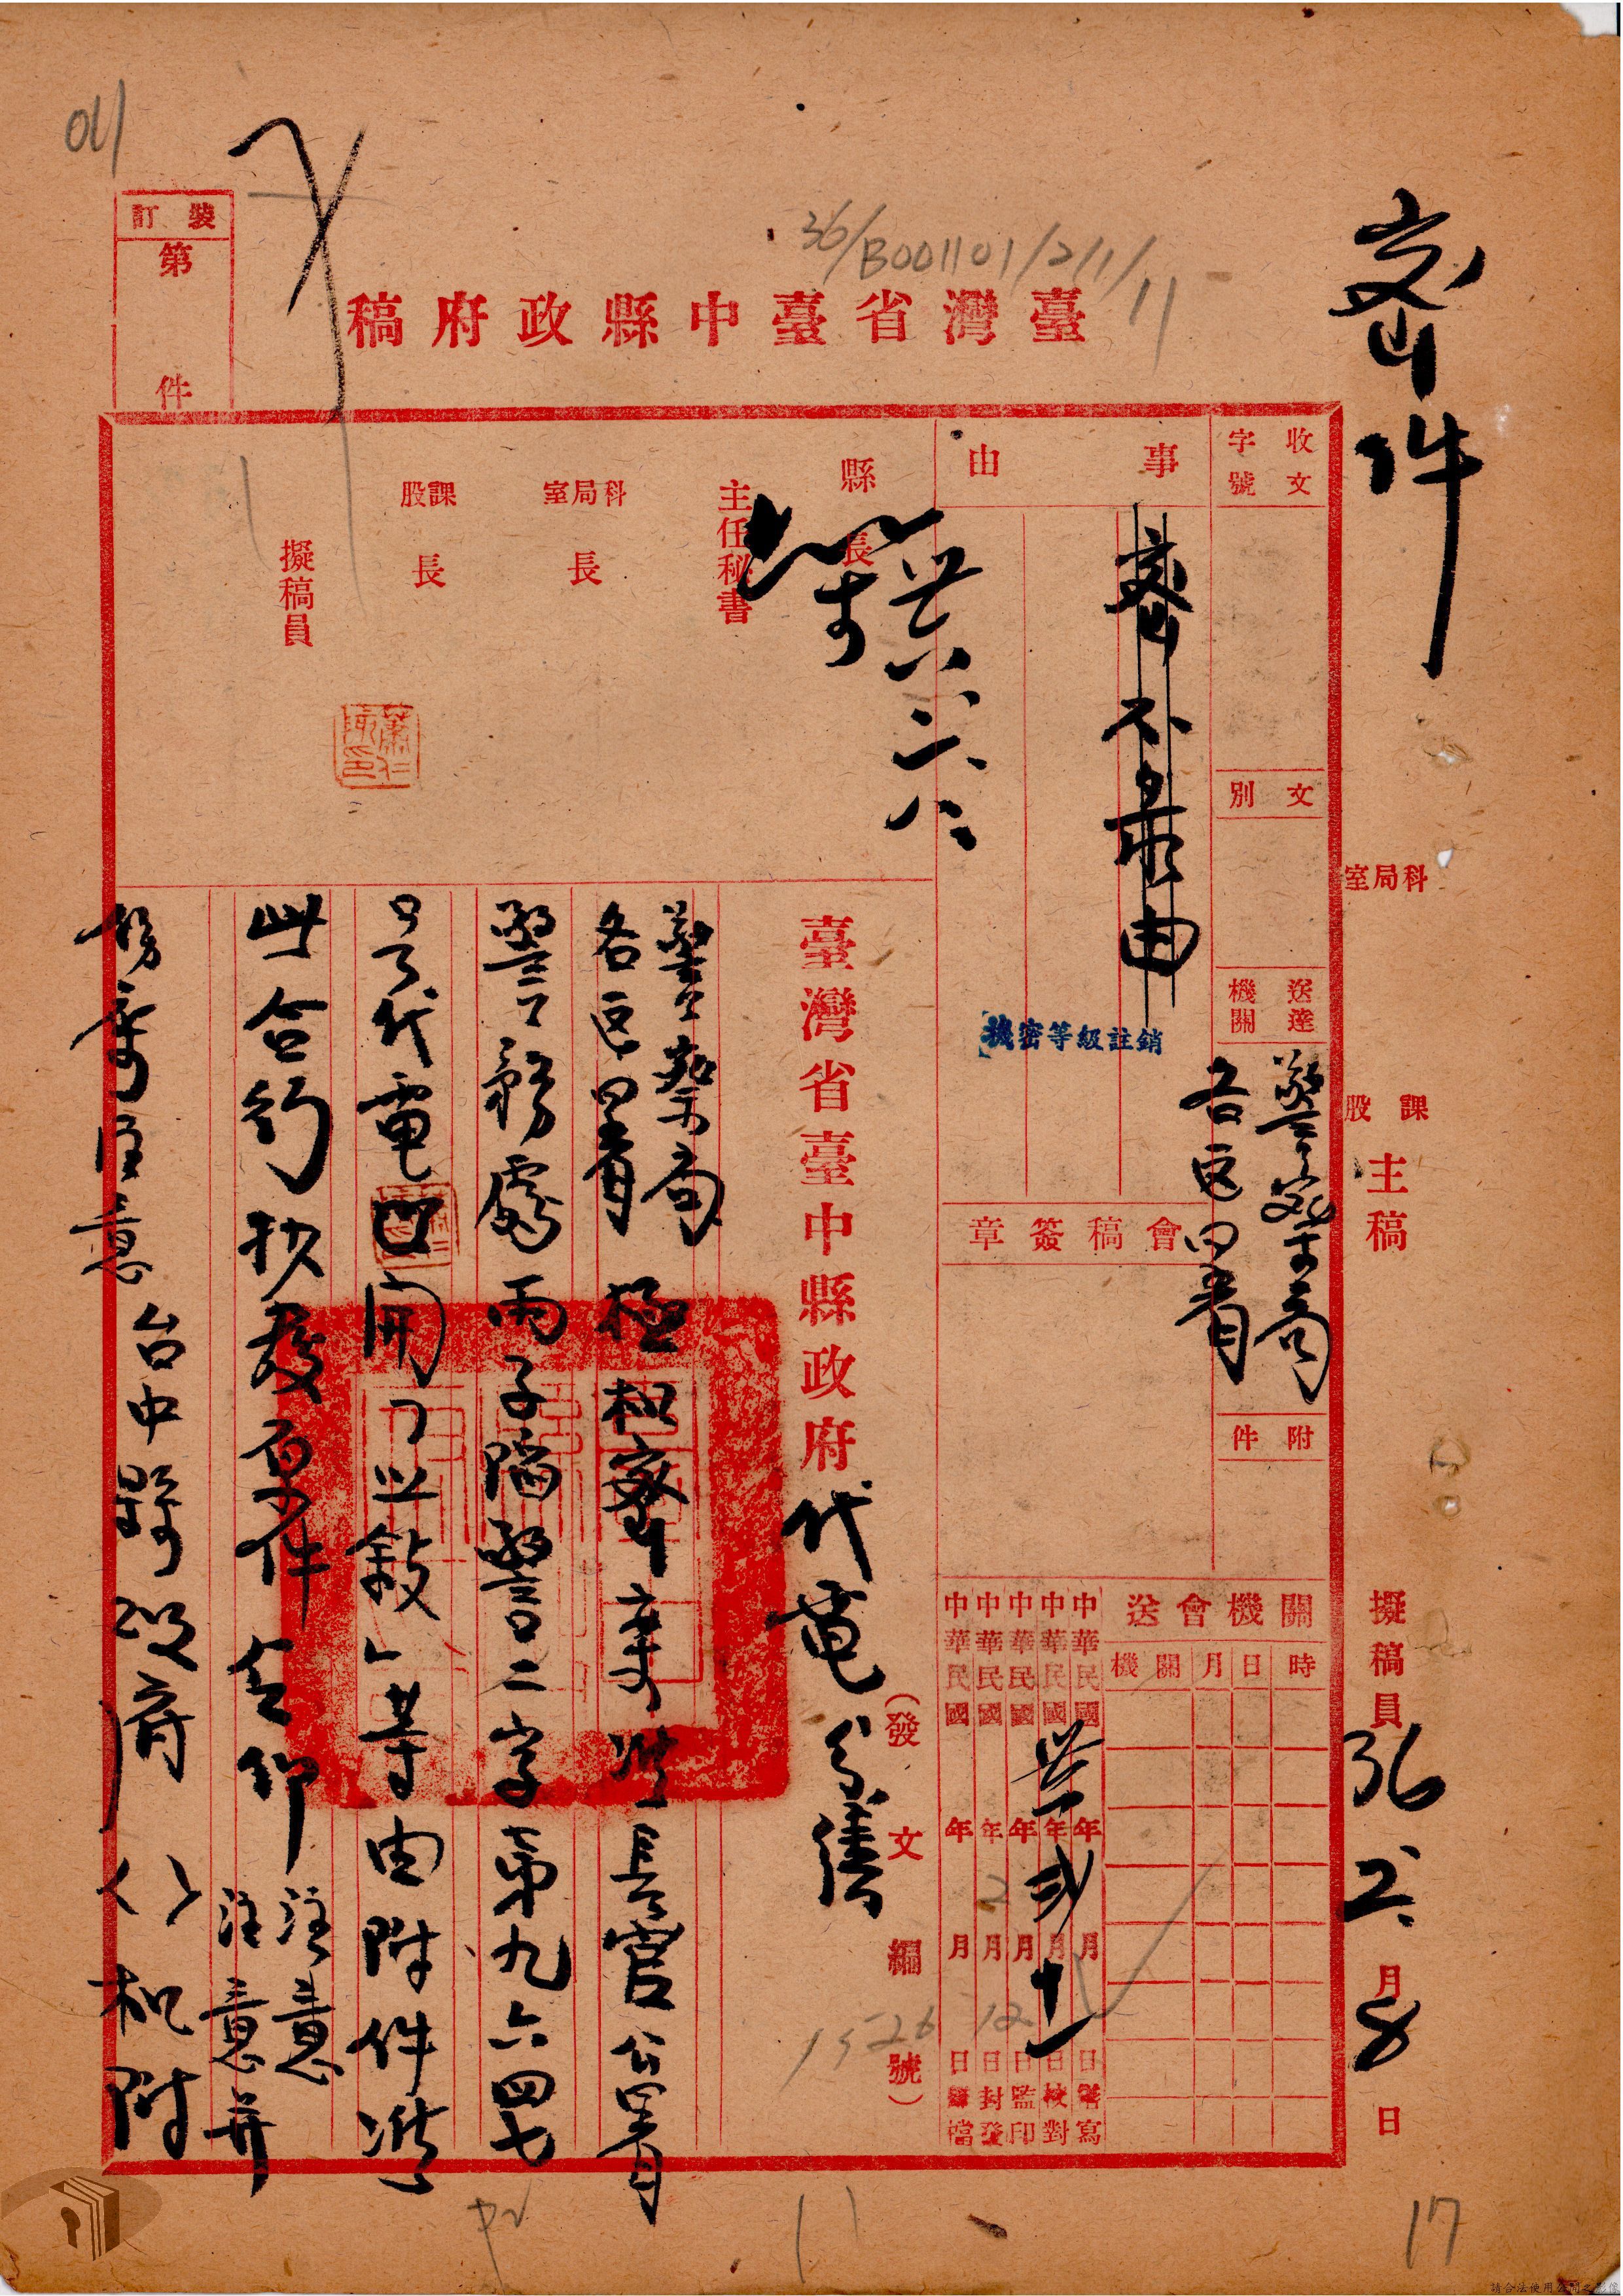 密件
36/B001101/2/1/11
臺灣省臺中縣政府稿
裝訂
第 件
收文
字號
文別
送達
機關
警察局
各區署
附件
事由
密不录由
機密等級註銷
會稿簽章
關機會送
時 日 月 關機
中華民國 年 月 日繕寫
中華民國 卅六年 弍月 十一日校對
中華民國 年 月 日監印
中華民國 年 2月 12日封發
中華民國 年 月 日歸檔
科局室
課股
主稿
擬稿員
36 2月8日
縣長
卅六、二、八
主任秘書
科局室長
課股長
擬稿員
臺灣省臺中縣政府代電
(發文編號)
1526
警察局
各區署
極机密案准長官公署
警務處丙子陽警二字第九六四七
号代電開「照敍」等由附件准
此合行抄發原件令仰注意
注意并
飭屬注意
台中縣政府
机附
17